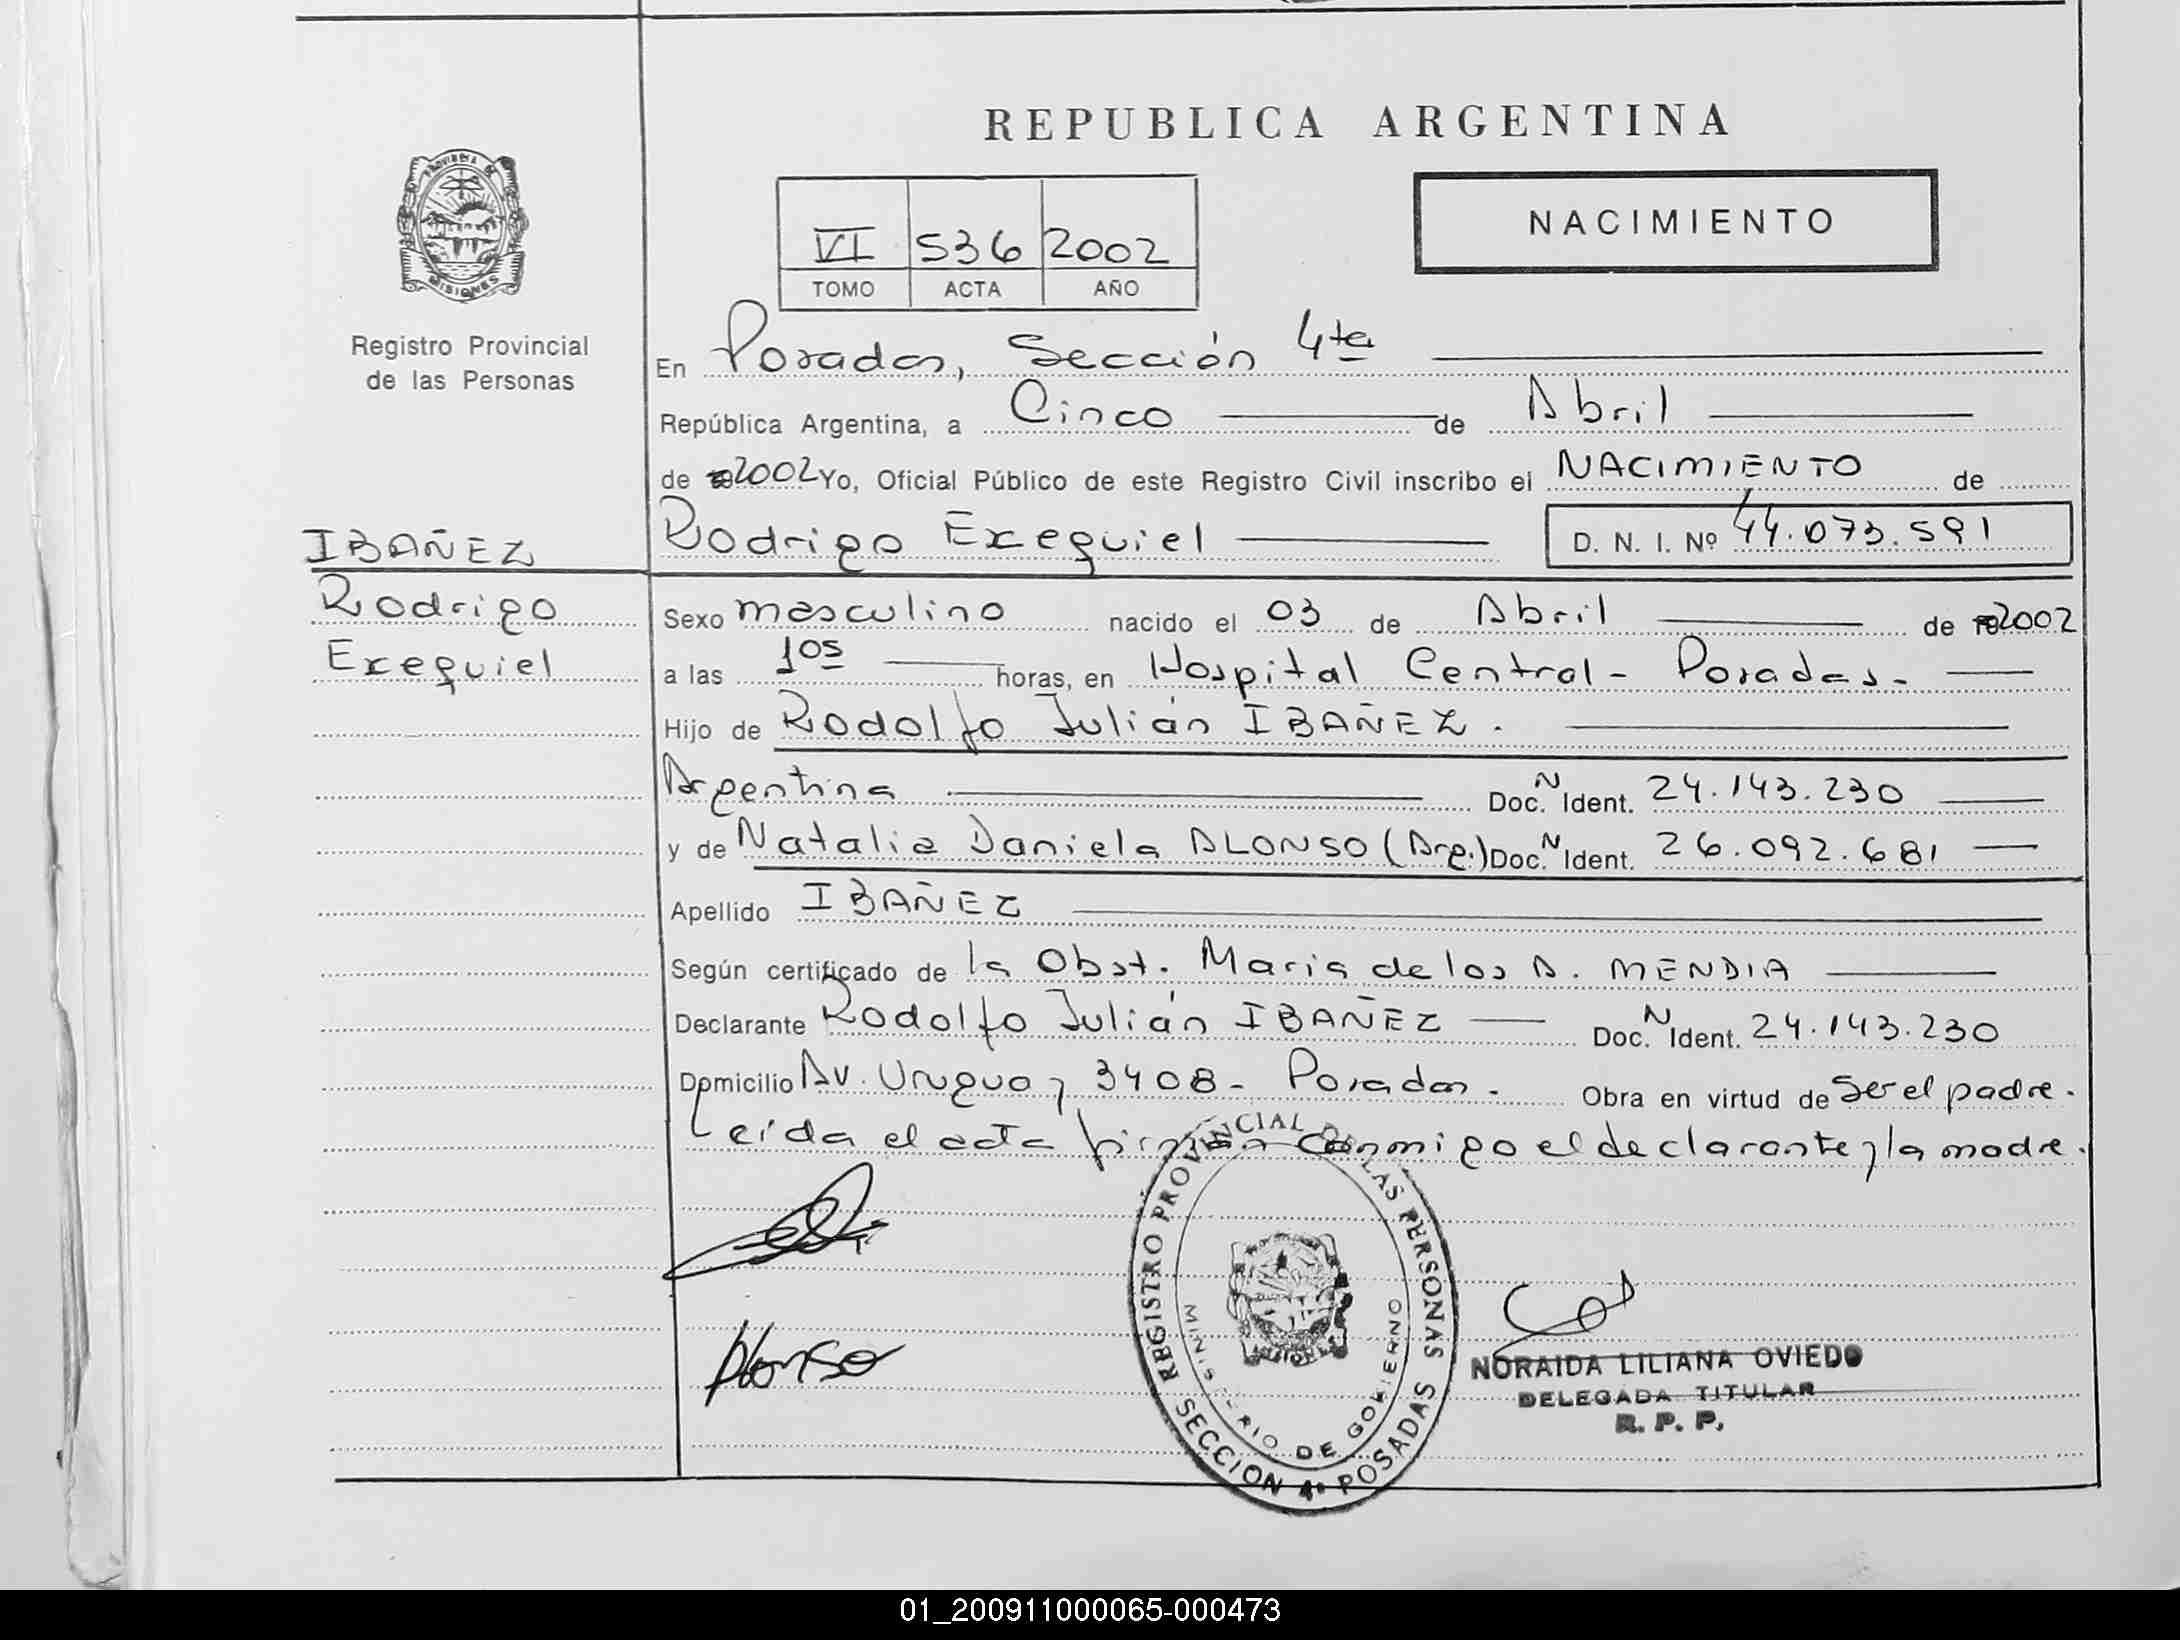 REPUBLICA ARGENTINA
PROVINCIA DE
MISIONES
Registro Provincial
de las Personas
VI 536 2002
TOMO ACTA AÑO
NACIMIENTO
En Posadas, Sección 4ta
República Argentina, a Cinco de Abril
de 2002 Yo, Oficial Público de este Registro Civil inscribo el NACIMIENTO de
IBAÑEZ
Rodrigo Exequiel D. N. I. Nº 44.073.591
Rodrigo
Exequiel
Sexo masculino nacido el 03 de Abril de 2002
a las 105 horas, en Hospital Central - Posadas -
Hijo de Rodolfo Julián IBAÑEZ.
Argentina Doc. N Ident. 24.143.230
y de Natalia Daniela ALONSO (Arg.) Doc. N Ident. 26.092.681
Apellido IBAÑEZ
Según certificado de la Obst. Maria de los A. MENDIA
Declarante Rodolfo Julián IBAÑEZ Doc. N Ident. 24.143.230
Domicilio Av. Uruguay 3408 - Posadas. Obra en virtud de Ser el padre.
Leída el acta firman conmigo el declarante y la madre.
REGISTRO PROVINCIAL DE LAS PERSONAS
MINISTERIO DE GOBIERNO
SECCION 4ª POSADAS
Alonso
NORAIDA LILIANA OVIEDO
DELEGADA TITULAR
R. P. P.
01_200911000065-000473